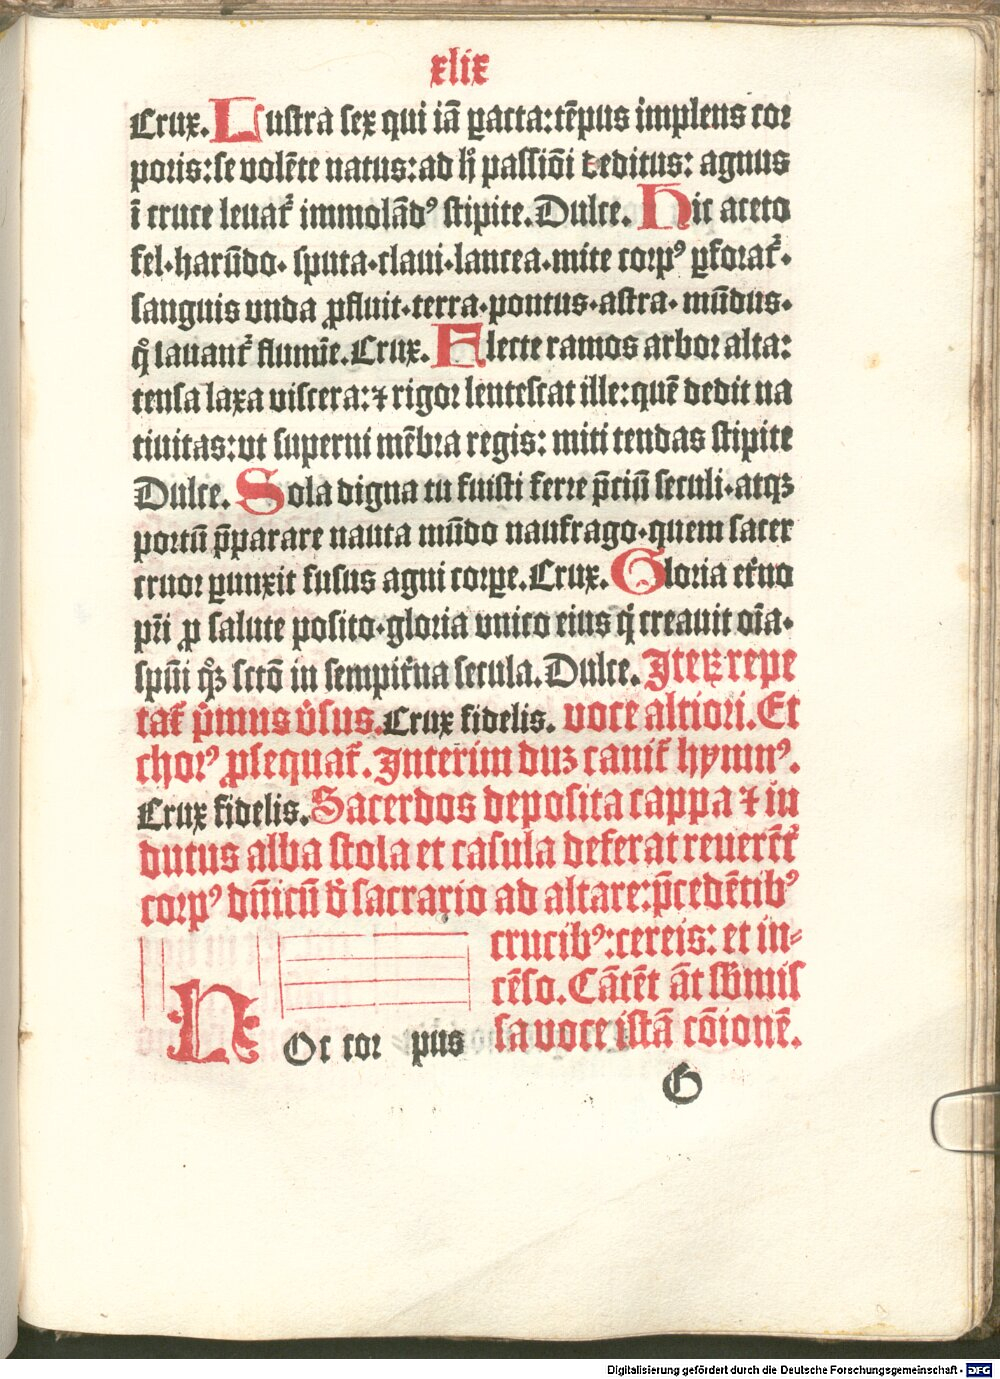 xlix
Crux. Lustra sex qui iā ꝑacta: tēpus implens coꝛ
poꝛis: se volēte natus: ad hͦ passiōi deditus: agnus
ī cruce leuat᷑ immolādꝰ stipite. Dulce. Hic aceto
fel· harūdo· sputa· claui· lancea· mite coꝛpꝰ ꝑfoꝛat᷑·
sanguis vnda ꝓfluit· terra· pontus· astra· mūdus·
q̊ lauant᷑ flumīe. Crux. Flecte ramos arboꝛ alta:
tensa laxa viscera: ⁊ rigoꝛ lentescat ille: quē dedit na
tiuitas: vt superni mēbꝛa regis: miti tendas stipite
Dulce. Sola digna tu fuisti ferre p̄ciū seculi· atqꝫ
poꝛtū p̄parare nauta mūdo naufrago· quem sacer
cruoꝛ ꝑunxit fusus agni coꝛꝑe. Crux. Gloꝛia et᷑no
pr̄i ꝓ salute posito· gloꝛia vnico eius qͥ creauit oīa·
spūi qꝫ sctō in sempit᷑na secula. Dulce. Iteꝝ repe
tat᷑ pͥmus v̓sus. Crux fidelis. voce altioꝛi. Et
choꝛꝰ ꝓsequat᷑. Interim duꝫ canit᷑ hymnꝰ.
Crux fidelis. Sacerdos deposita cappa ⁊ in
dutus alba stola et casula deferat reuerēt᷑
coꝛpꝰ dn̄icū d̓ sacrario ad altare: p̄cedētibꝰ
crucibꝰ: cereis: et in⸗
cēso. Cātēt āt sb̄mis
sa voce istā cōionē.
HOc coꝛ pus
G
Digitalisierung gefördert durch die Deutsche Forschungsgemeinschaft - DFG